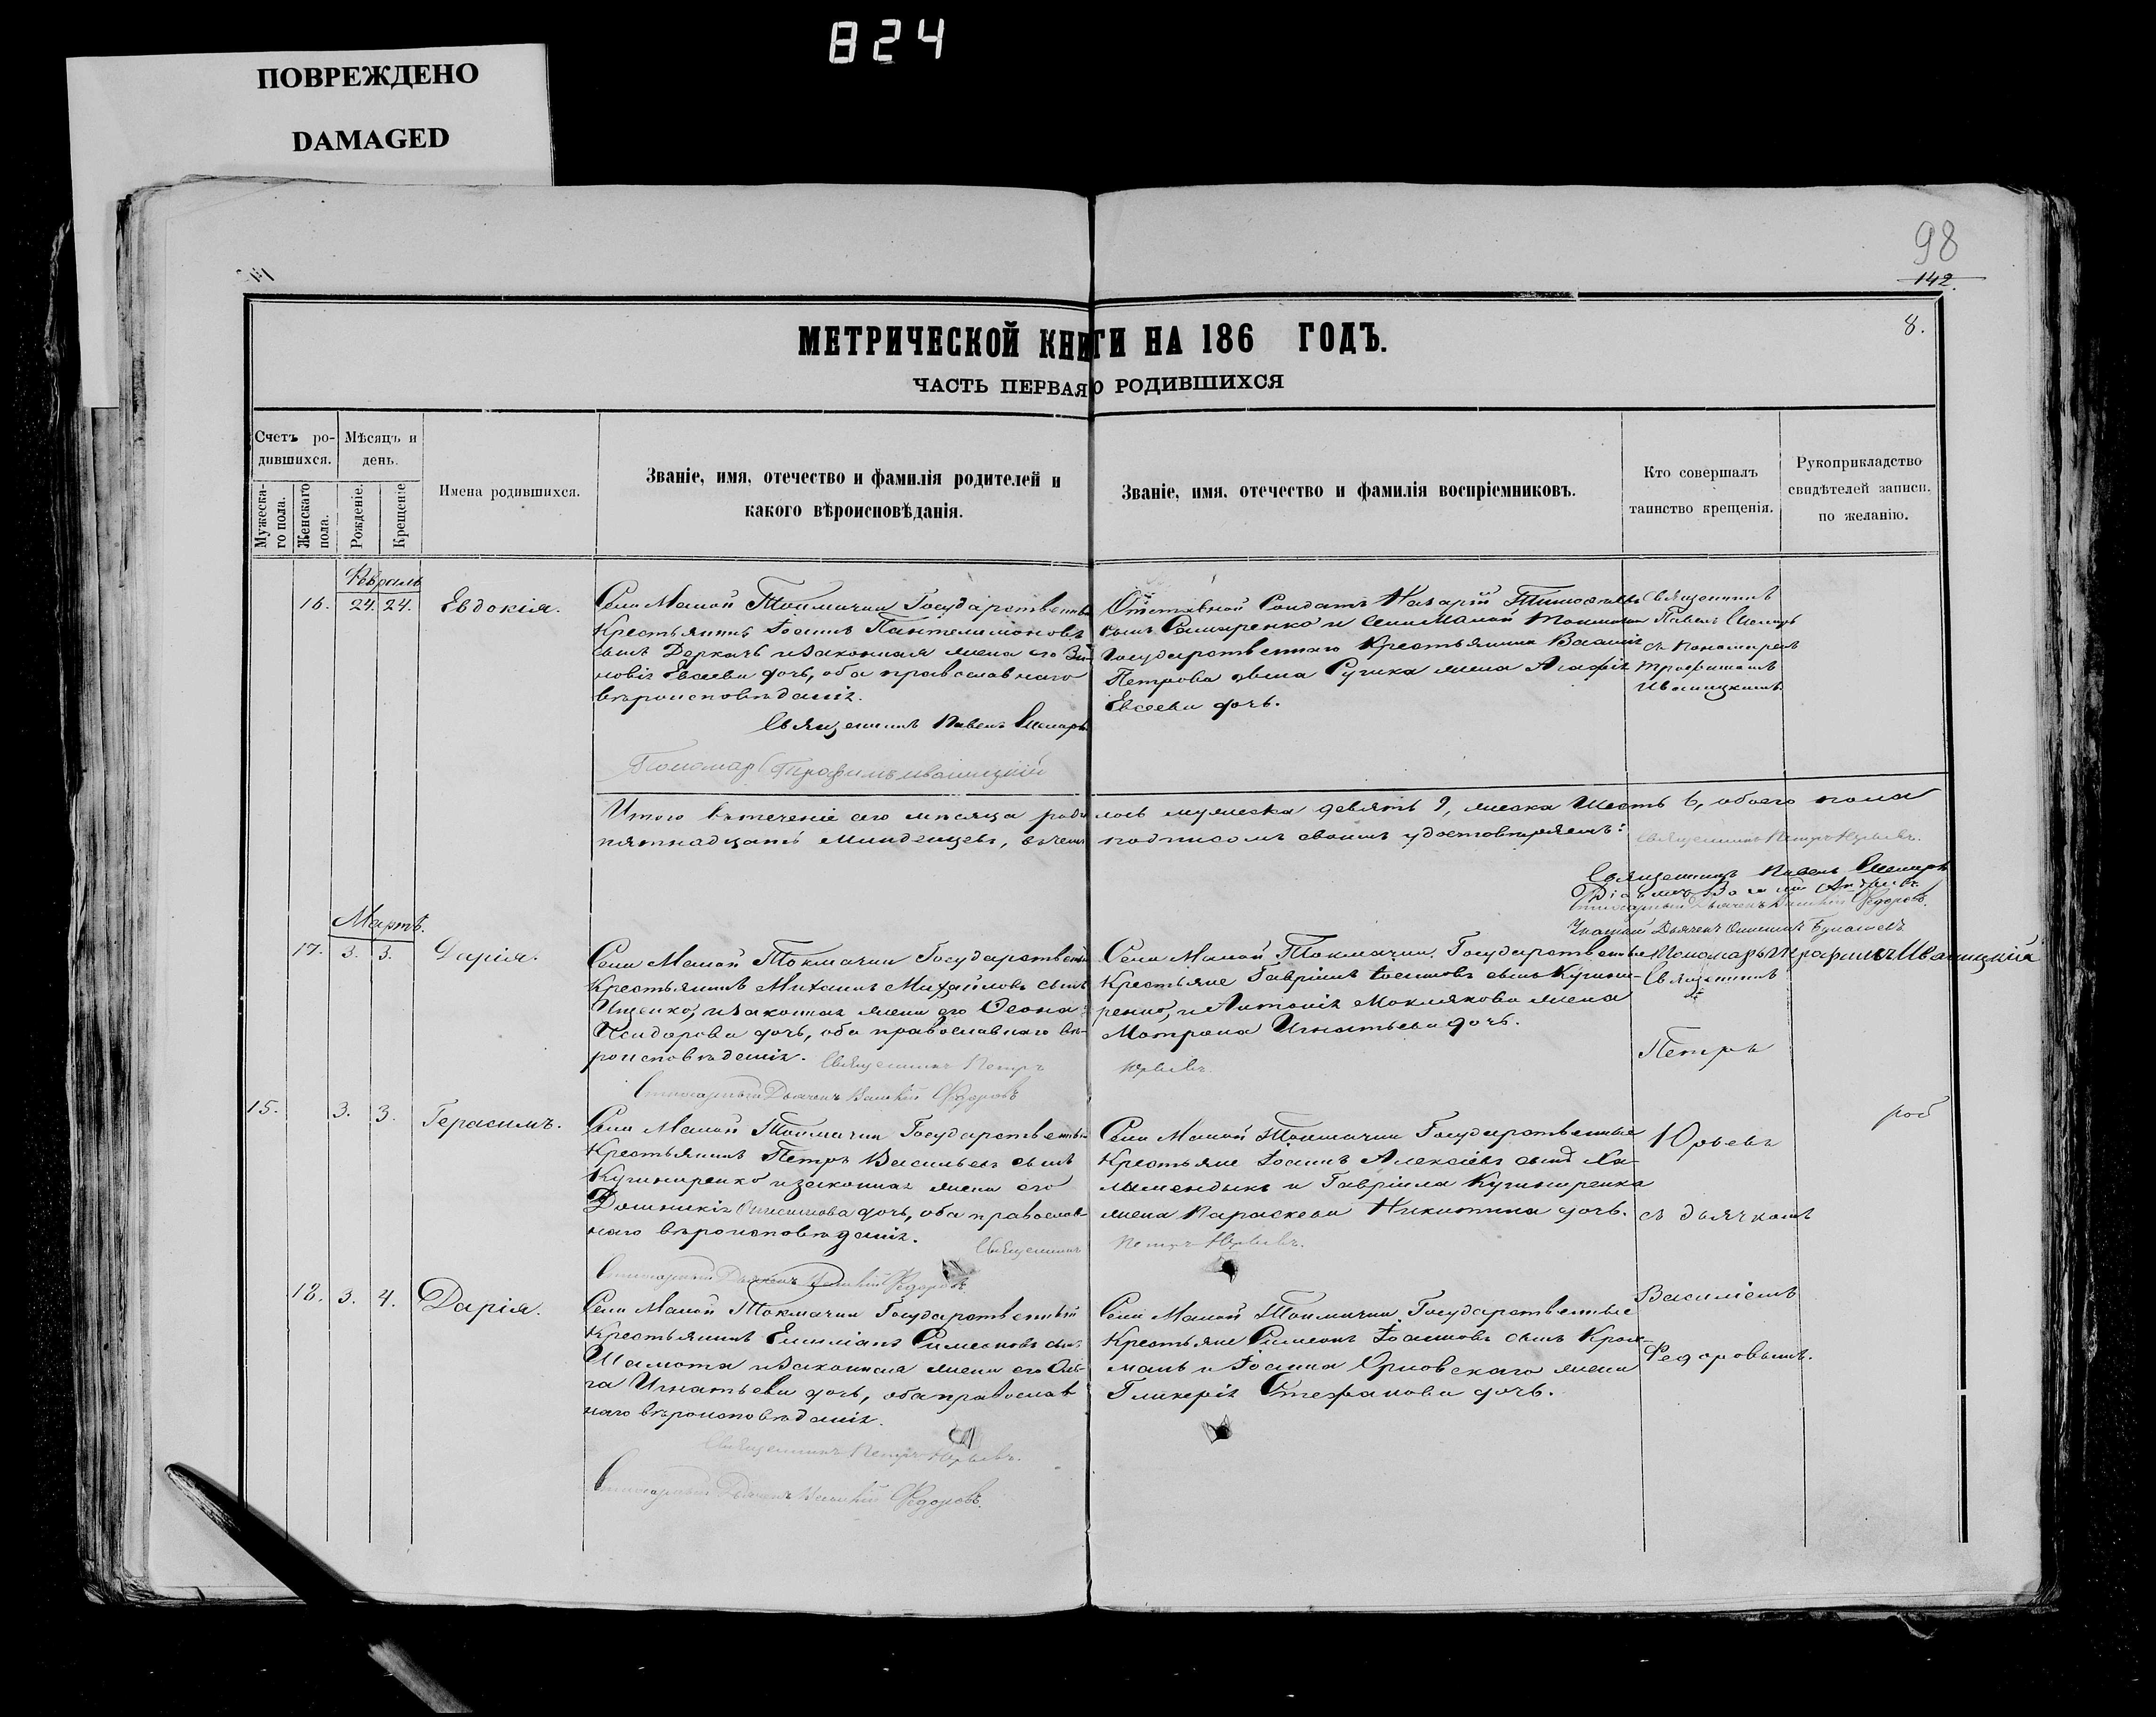 824
ПОВРЕЖДЕНО
DAMAGED
98
142.
8.
МЕТРИЧЕСКОЙ КНИГИ НА 186 ГОДЪ.
ЧАСТЬ ПЕРВАЯ О РОДИВШИХСЯ
Счетъ ро-
дившихся.
Мѣсяцъ и
день.
Мужеска-
го пола.
Женскаго
пола.
Рожденіе.
Крещеніе
Имена родившихся.
Званіе, имя, отечество и фамилія родителей и
какого вѣроисповѣданія.
Званіе, имя, отечество и фамилія воспріемниковъ.
Кто совершалъ
таинство крещенія.
Рукоприкладство
свидѣтелей записи.
по желанію.
Февраль
16. 24. 24. Евдокія.
Села Малой Токмачки Государственный
Крестьянинъ Іоаннъ Пантелимоновъ
сынъ Деркачъ и законная жена его Зи
новія Евсеева дочь, оба православнаго
вѣроисповѣданія.
Священникъ Павелъ
Пономарь Трофимъ Иваницкій
Отставной Солдатъ Назарій
сынъ и села Малой Токмачки
Государственнаго Крестьянина Василія
Петрова сына жена Агафія
Евсеева дочь.
Священникъ
Павелъ
съ пономаремъ
Трофимомъ
Иваницкимъ.
Итого въ теченіе сего мѣсяца роди лось мужеска девять 9, женска шесть 6, обоего пола
пятнадцать младенцевъ, въ чемъ подписомъ своимъ удостовѣряемъ: Священникъ Петръ Юрьевъ.
Священникъ Павелъ
Дьячекъ Василій Федоровъ.
Пономарь Трофимъ Иваницкій
Мартъ.
17. 3. 3. Дарія.
Села Малой Токмачки Государственный
Крестьянинъ Михаилъ Михайловъ сынъ
Ищенко, и законная жена его Ѳеона
Исидорова дочь, оба православнаго вѣ-
роисповѣданія. Священникъ Петръ Юрьевъ.
Дьячекъ Василій Федоровъ
Села Малой Токмачки Государственные
Крестьяне Гавріилъ Іоанновъ сынъ Кушни-
ренко, и Антонія Моклякова жена
Матрона Игнатьева дочь.
Священникъ
Петръ
Юрьевъ
съ дьячкомъ
Василіемъ
Федоровымъ.
15. 3. 3. Герасимъ.
Села Малой Токмачки Государственный
Крестьянинъ Петръ Васильевъ сынъ
Кушниренко и законная жена его
Домникія Онисимова дочь, оба православ-
наго вѣроисповѣданія.
Священникъ Петръ Юрьевъ.
Дьячекъ Василій Федоровъ
Села Малой Токмачки Государственные
Крестьяне Іоаннъ Алексѣевъ сынъ Ка-
и Гавріила Кушниренка
жена Параскева Никитина дочь.
18. 3. 4. Дарія.
Села Малой Токмачки Государственный
Крестьянинъ Емиліанъ Симеоновъ сынъ
Шамота и законная жена его Оль-
га Игнатьева дочь, оба православ
наго вѣроисповѣданія.
Священникъ Петръ Юрьевъ.
Дьячекъ Василій Федоровъ.
Села Малой Токмачки Государственные
Крестьяне Симеонъ Іоанновъ сынъ
и Іоанна Орловскаго жена
Гликерія Стефанова дочь.